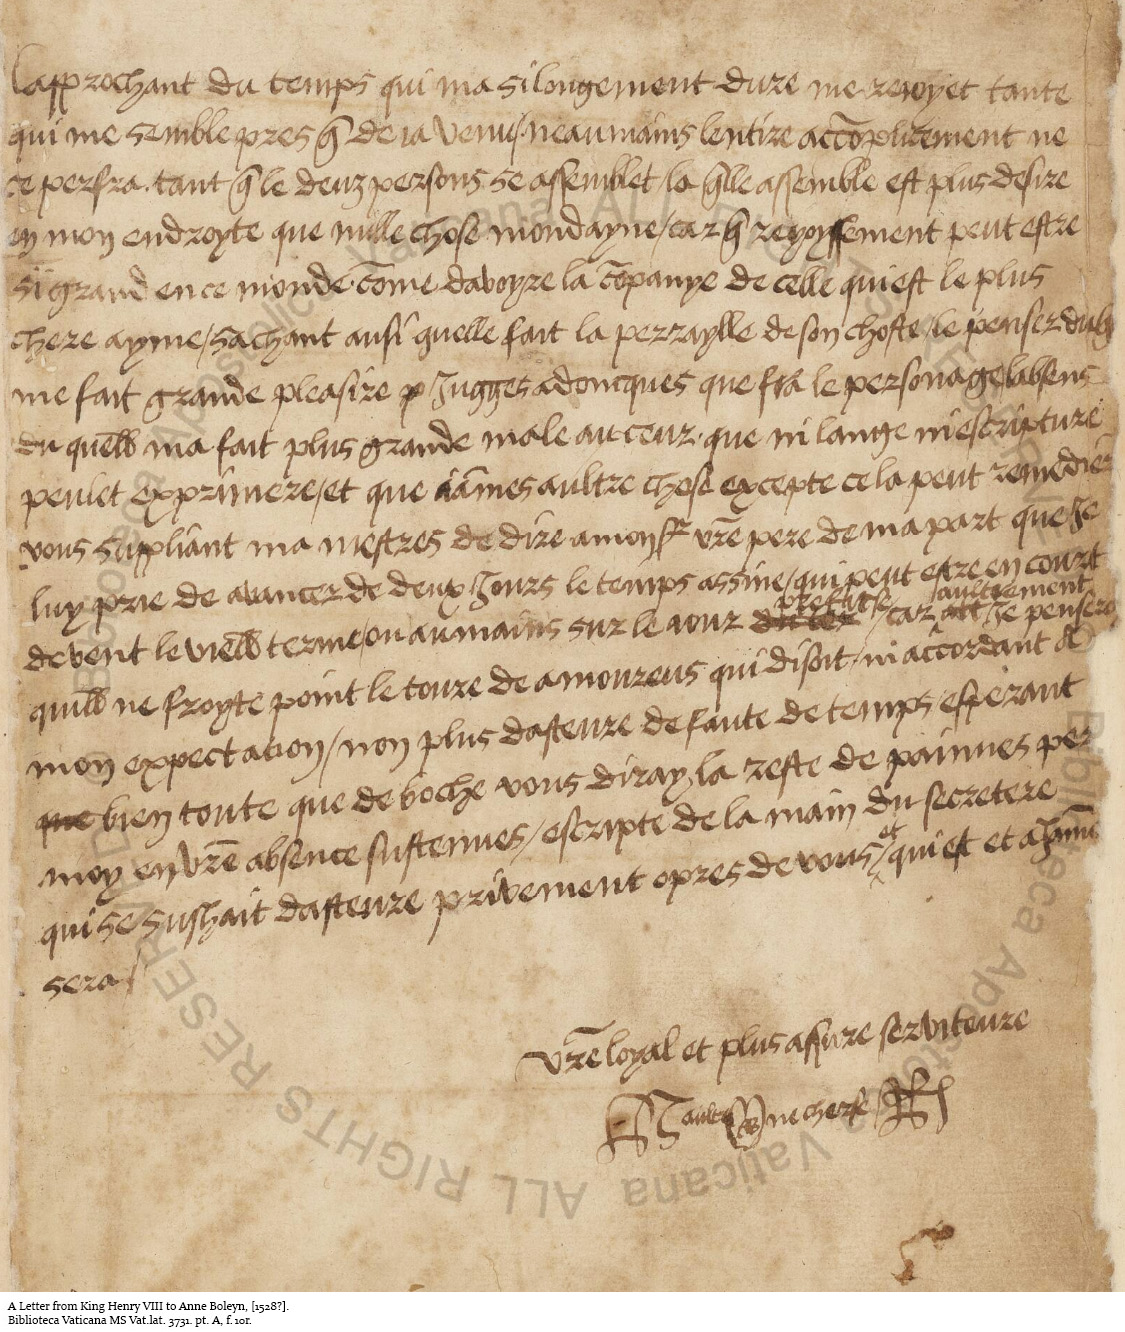 Lapprochant du temps qui ma si longement dure me reioyet tante
qui me semble pres q̃ de ia venu / neaumains lentire accõplicement ne
ce perfra. tant q̃ le deuz persons se assemblet / la q̃lle assemble est plus desire
en mon endroyte que nulle chose mondayne / car q̃ reioyssement peut estre
si grand en ce monde cõme davoyre la cõpanye de celle qui est le plus
chere ayme / sachant ausi quelle fait la perraylle de son choste / le penser du
me fait grande pleasire Jugges adoncques que fra le personage labsens
du ma fait plus grande male au ceur que ni lange ni escripture
peulet exprimere / et que iãmes aultre chose excepte cela peut remedier
vous suppliant ma mestres de dire a monsr vr̃e pere de ma part que Je
luy prie de avancer de deux Jours le temps assine / qui peut estre en court
devent le terme / ou aumains sur le iour prefixse / car aultrement Je pensero
ne froyte point le toure de amoureus qui disoit / ni accordant a
mon expectation / non plus dasteure de faute de temps esperant
bien toute que de boche vous diray la reste de painnes per
moy en vr̃e absence sustennes / escripte de la main du secretere
qui se sushait dasteure privement opres de vous / et qui est et a Jamẽs
sera /
vr̃e loyal et plus assure serviteure
H aultre ne cherse R
© Biblioteca Apostolica Vaticana ALL RIGHTS RESERVED
A Letter from King Henry VIII to Anne Boleyn, [1528?].
Biblioteca Vaticana MS Vat.lat. 3731. pt. A, f. 10r.